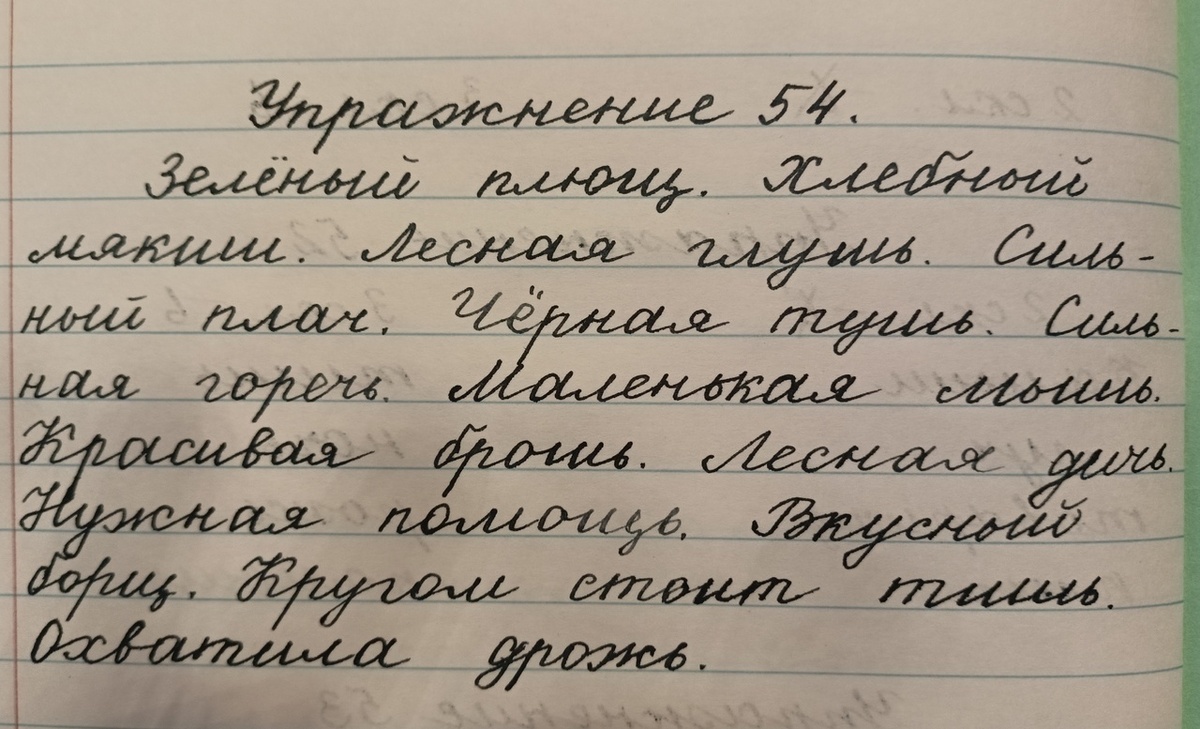 Упражнение 54.
Зелёный плющ. Хлебный
мякиш. Лесная глушь. Силь-
ный плач. Чёрная тушь. Силь-
ная горечь. Маленькая мышь.
Красивая брошь. Лесная дичь.
Нужная помощь. Вкусный
борщ. Кругом стоит тишь.
Охватила дрожь.